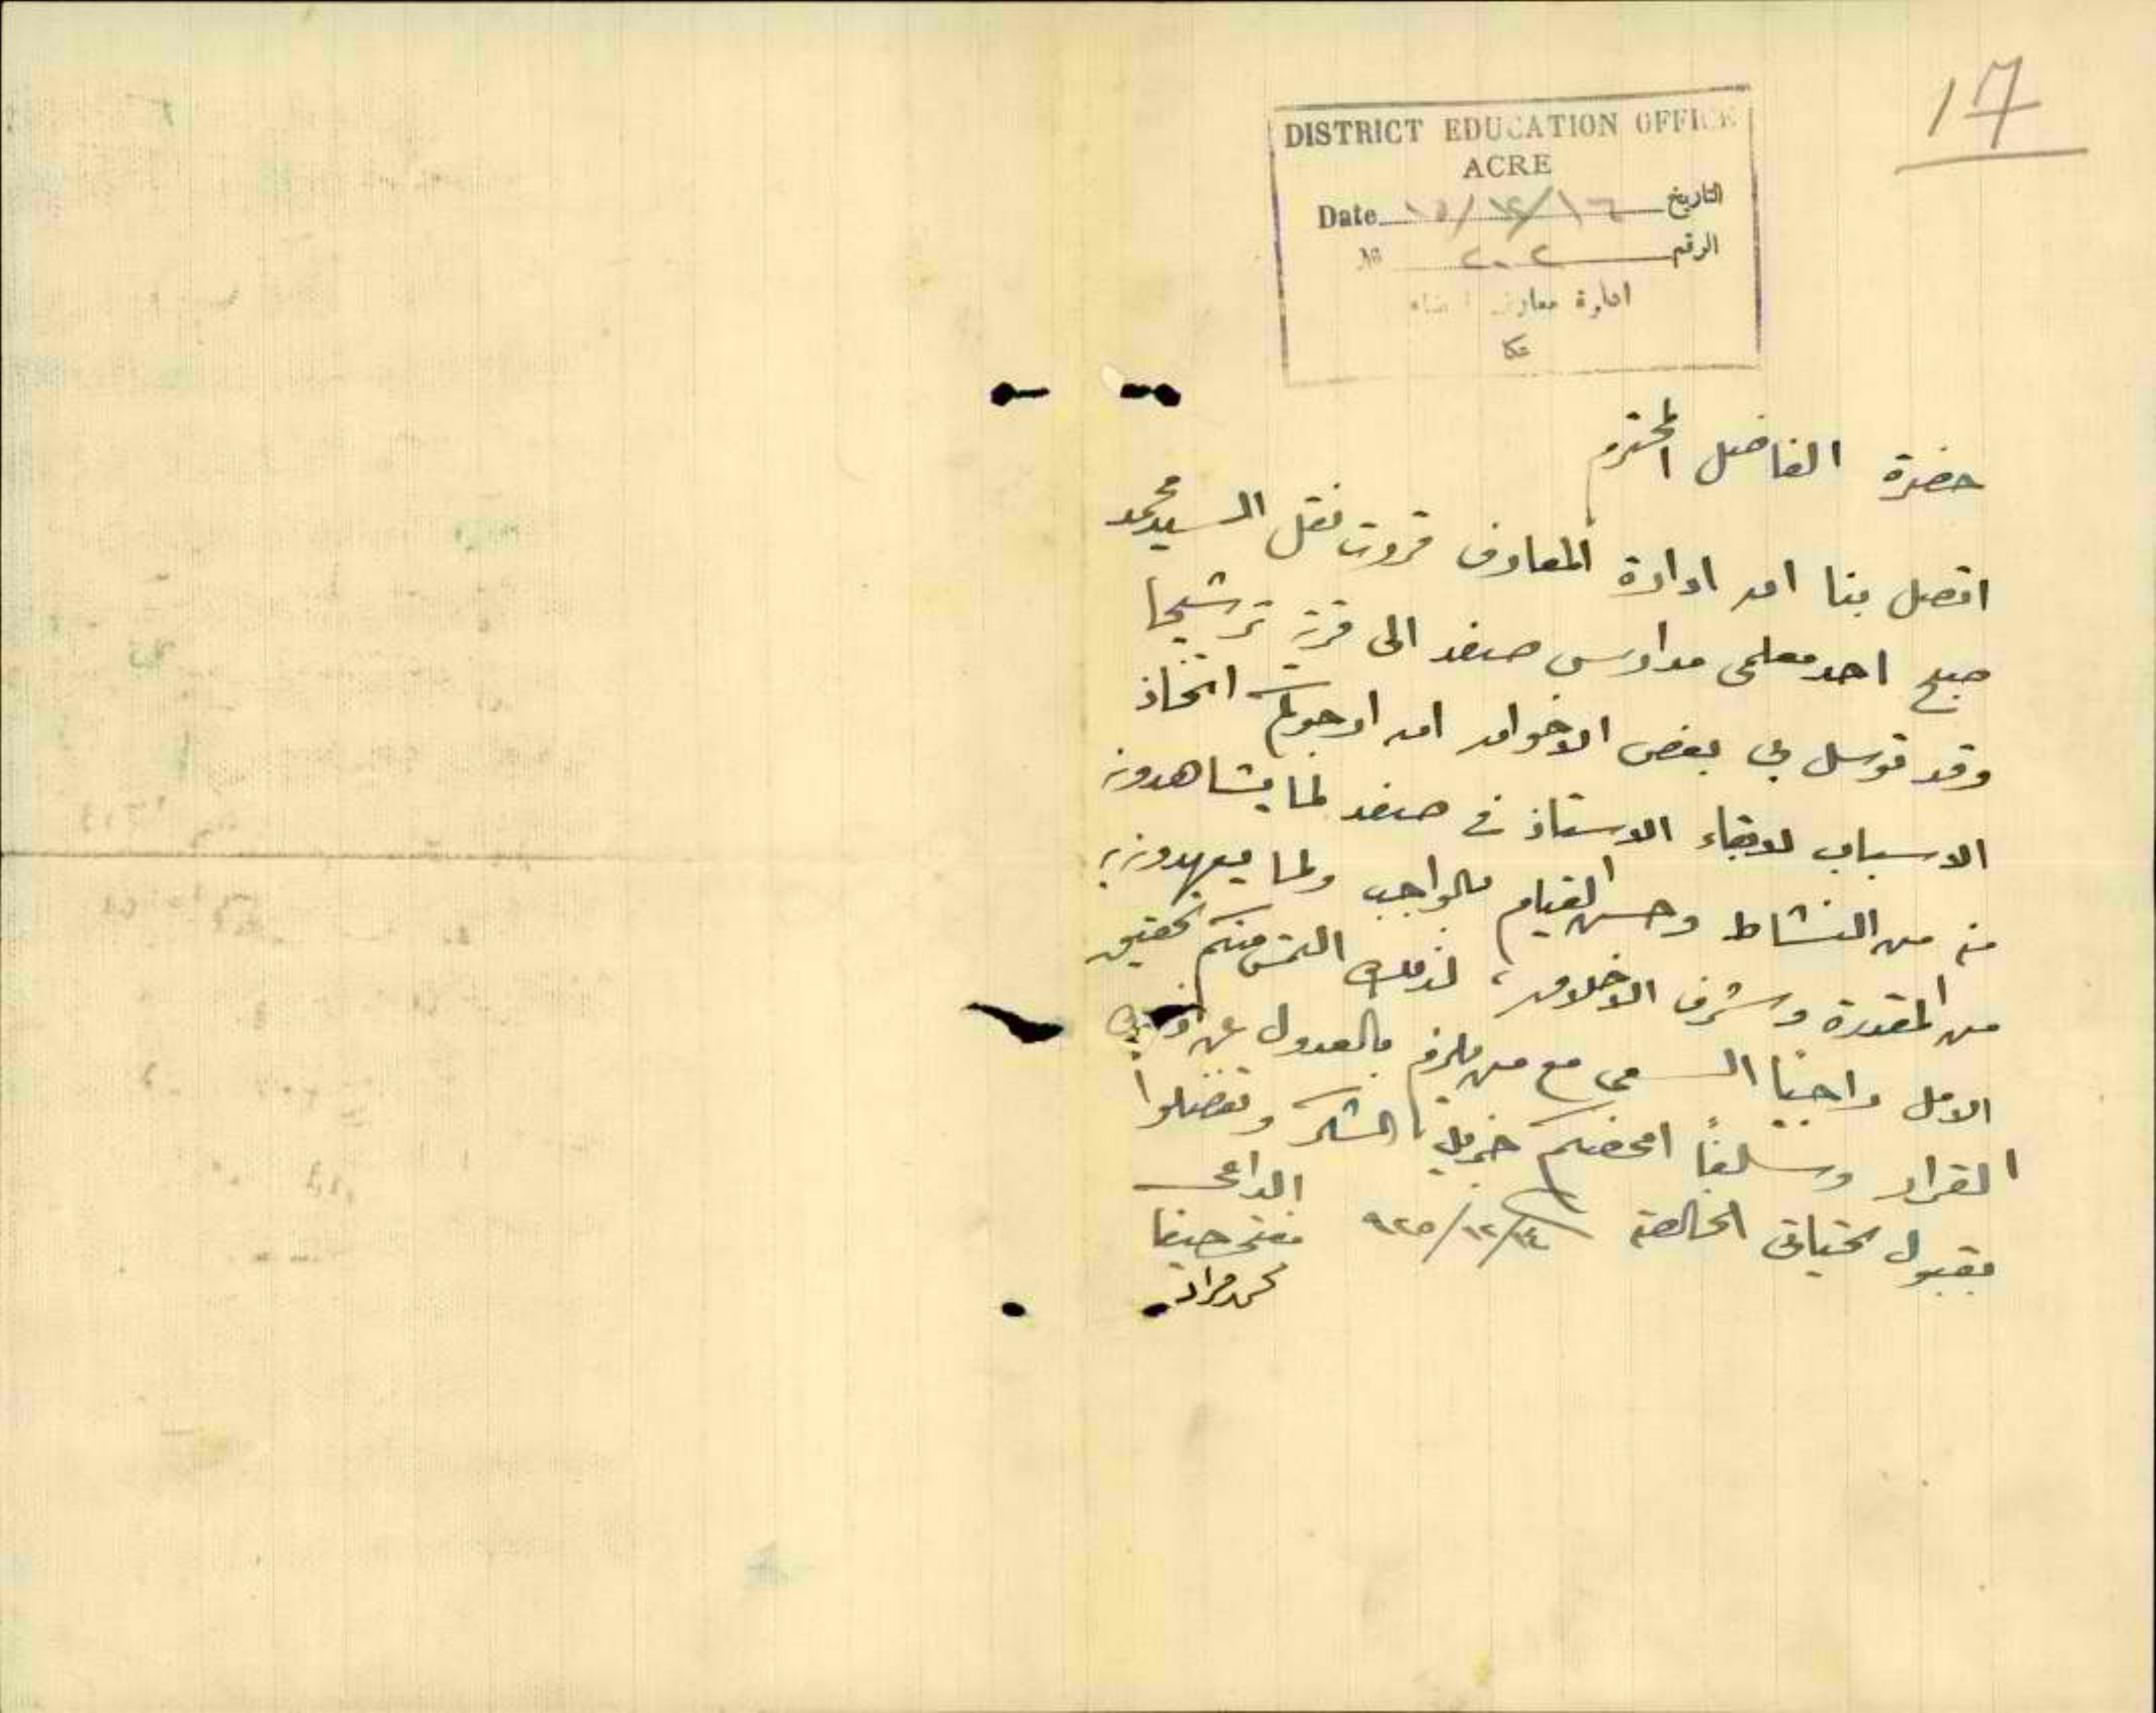 17
DISTRICT EDUCATION OFFICE
ACRE
Date ١٦/١٢/١٥ التاريخ
№ ٢٠٢ الرقم
ادارة معارف
عكا
حضرة الفاضل المحترم
اتصل بنا ان ادارة المعارف قررت نقل السيد محمد
صبح احد معلمي مدارس صفد الى قرية ترشيحا
وقد توسل بي بعض الاخوان ان ارجوكم اتخاذ
الاسباب لابقاء الاستاذ في صفد لما يشاهدونه
منه من النشاط وحسن القيام بالواجب ولما يعهدون به
من المقدرة وشرف الاخلاق، لذلك التمس منكم تحقيق
الامل راجيًا السعي مع من يلزم بالعدول عن
القرار وسلفًا امحضكم جزيل الشكر وتفضلوا
بقبول تحياتي الخالصة ١٤/١٢/٩٢٥ الداعي
مفتي حيفا
محمد مراد